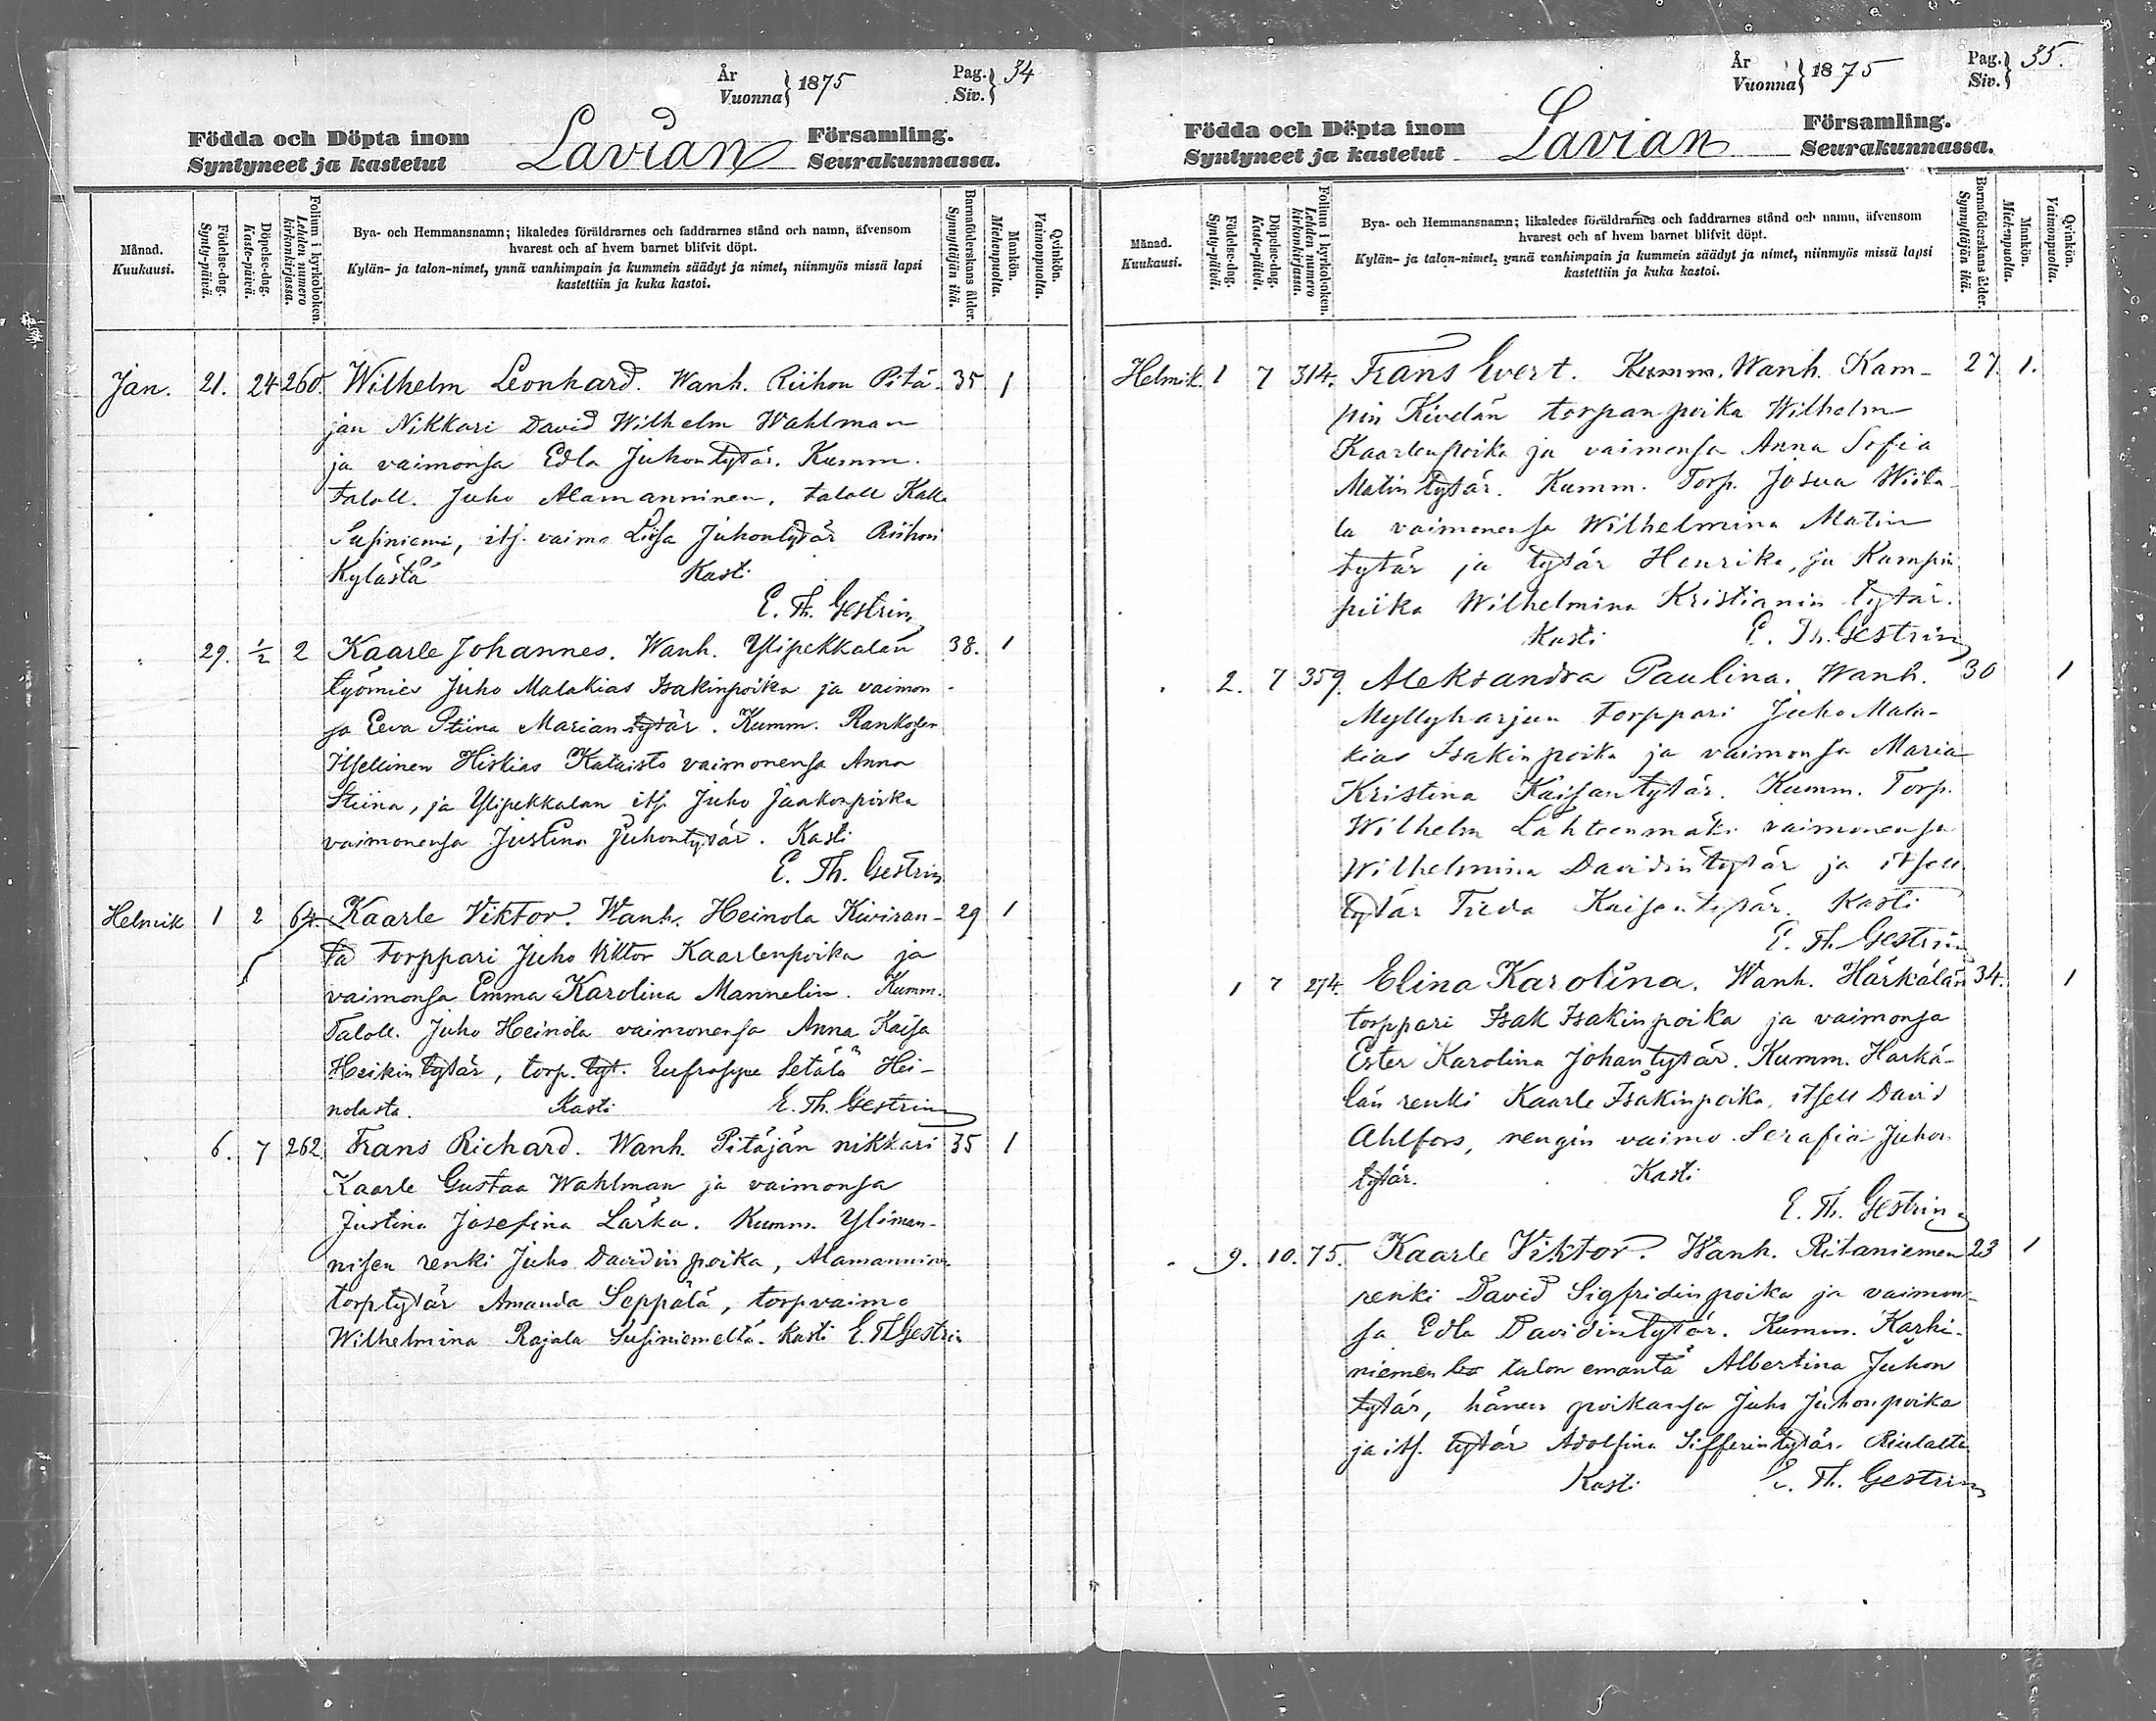 År
Vuonna } 1875
Pag.
Siv. } 34
Födda och Döpta inom
Syntyneet ja kastetut
Lavian
Församling.
Seurakunnassa.
Månad.
Kuukausi.
Födelse-dag.
Synty-päivä.
Döpelse-dag.
Kaste-päivä.
Folium i kyrkoboken.
Lehden numero
kirkonkirjassa.
Bya- och Hemmansnamn; likaledes föräldrarnes och faddrarnes stånd och namn, äfvensom
hvarest och af hvem barnet blifvit döpt.
Kylän- ja talon-nimet, ynnä vanhimpain ja kummein säädyt ja nimet, niinmyös missä lapsi
kastettiin ja kuka kastoi.
Barnaföderskans ålder.
Synnyttäjän ikä.
Mankön.
Miehenpuolta.
Qvinkön.
Vaimonpuolta.
Jan. 21. 24 260. Wilhelm Leonhard. Wanh. Riihon Pitä- 35 1
jän Nikkari David Wilhelm Wahlman
ja vaimonsa Edla Juhontytär. Kumm.
taloll. Juho Alamanninen, taloll Kalle
Susiniemi, its. vaimo Liisa Juhontytär Riihon
Kylästä Kasti
E. Th. Gestrin
29. 1/2 2 Kaarle Johannes. Wanh. Ylipekkalan 38. 1
työmies Juho Malakias Isakinpoika ja vaimon-
sa Eeva Stiina Mariantytär. Kumm. Rankosen
Itsellinen Hiskias Kataisto vaimonensa Anna
Stiina, ja Ylipekkalan its. Juho Jaakonpoika
vaimonensa Justina Juhontytär. Kasti
E. Th. Gestrin
Helmik 1 2 64. Kaarle Viktor. Wanh. Heinola Kiviran- 29 1
ta torppari Juho Viktor Kaarlenpoika ja
vaimonsa Emma Karolina Mannelin. Kumm.
Taloll. Juho Heinola vaimonensa Anna Kaisa
Heikintytär, torp. tyt. Eufrosyne Setälä Hei-
nolasta. Kasti E. Th. Gestrin
6. 7 262 Frans Richard. Wanh. Pitäjän nikkari 35 1
Kaarle Gustaa Wahlman ja vaimonsa
Justina Josefina Lärka. Kumm. Yliman-
nisen renki Juho Davidinpoika, Alamannisen
torptytär Amanda Seppälä, torpvaimo
Wilhelmina Rajala Susiniemeltä. Kasti E. Th Gestrin
År
Vuonna } 1875
Pag.
Siv. } 35.
Födda och Döpta inom
Syntyneet ja kastetut
Lavian
Församling.
Seurakunnassa.
Månad.
Kuukausi.
Födelse-dag.
Synty-päivä.
Döpelse-dag.
Kaste-päivä.
Folium i kyrkoboken.
Lehden numero
kirkonkirjassa.
Bya- och Hemmansnamn; likaledes föräldrarnes och faddrarnes stånd och namn, äfvensom
hvarest och af hvem barnet blifvit döpt.
Kylän- ja talon-nimet, ynnä vanhimpain ja kummein säädyt ja nimet, niinmyös missä lapsi
kastettiin ja kuka kastoi.
Barnaföderskans ålder.
Synnyttäjän ikä.
Mankön.
Miehenpuolta.
Qvinkön.
Vaimonpuolta.
Helmik. 1 7 314. Frans Evert. Kumm. Wanh. Kam- 27. 1.
pin Kivelän torpanpoika Wilhelm
Kaarlenpoika ja vaimonsa Anna Sofia
Matintytär. Kumm. Torp. Josua Wiita-
la vaimonensa Wilhelmina Matin
tytär ja tytär Henrika, ja Kampin
piika Wilhelmina Kristianin tytär.
Kasti E. Th. Gestrin
2. 7 359. Aleksandra Paulina. Wanh. 30 1
Myllyharjun torppari Juho Mala-
kias Isakinpoika ja vaimonsa Maria
Kristina Kaisantytär. Kumm. Torp.
Wilhelm Lähteenmäki vaimonensa
Wilhelmina Davidintytär ja itsell
tytär Freda Kaisantytär. Kasti
E. Th. Gestrin
1 7 274. Elina Karolina. Wanh. Härkälän 34. 1
torppari Isak Isakinpoika ja vaimonsa
Ester Karolina Johantytär. Kumm. Härkä-
län renki Kaarle Isakinpoika, itsell David
Ahlfors, rengin vaimo Serafia Juhon
tytär. Kasti
E. Th. Gestrin
9. 10. 75. Kaarle Viktor. Wanh. Ritaniemen 23 1
renki David Sigfridinpoika ja vaimon-
sa Edla Davidintytär. Kumm. Karhi-
niemen talon emäntä Albertina Juhon
tytär, hänen poikansa Juho Juhonpoika
ja its. tytär Adolfina Sifferintytär.
Kasti E. Th. Gestrin